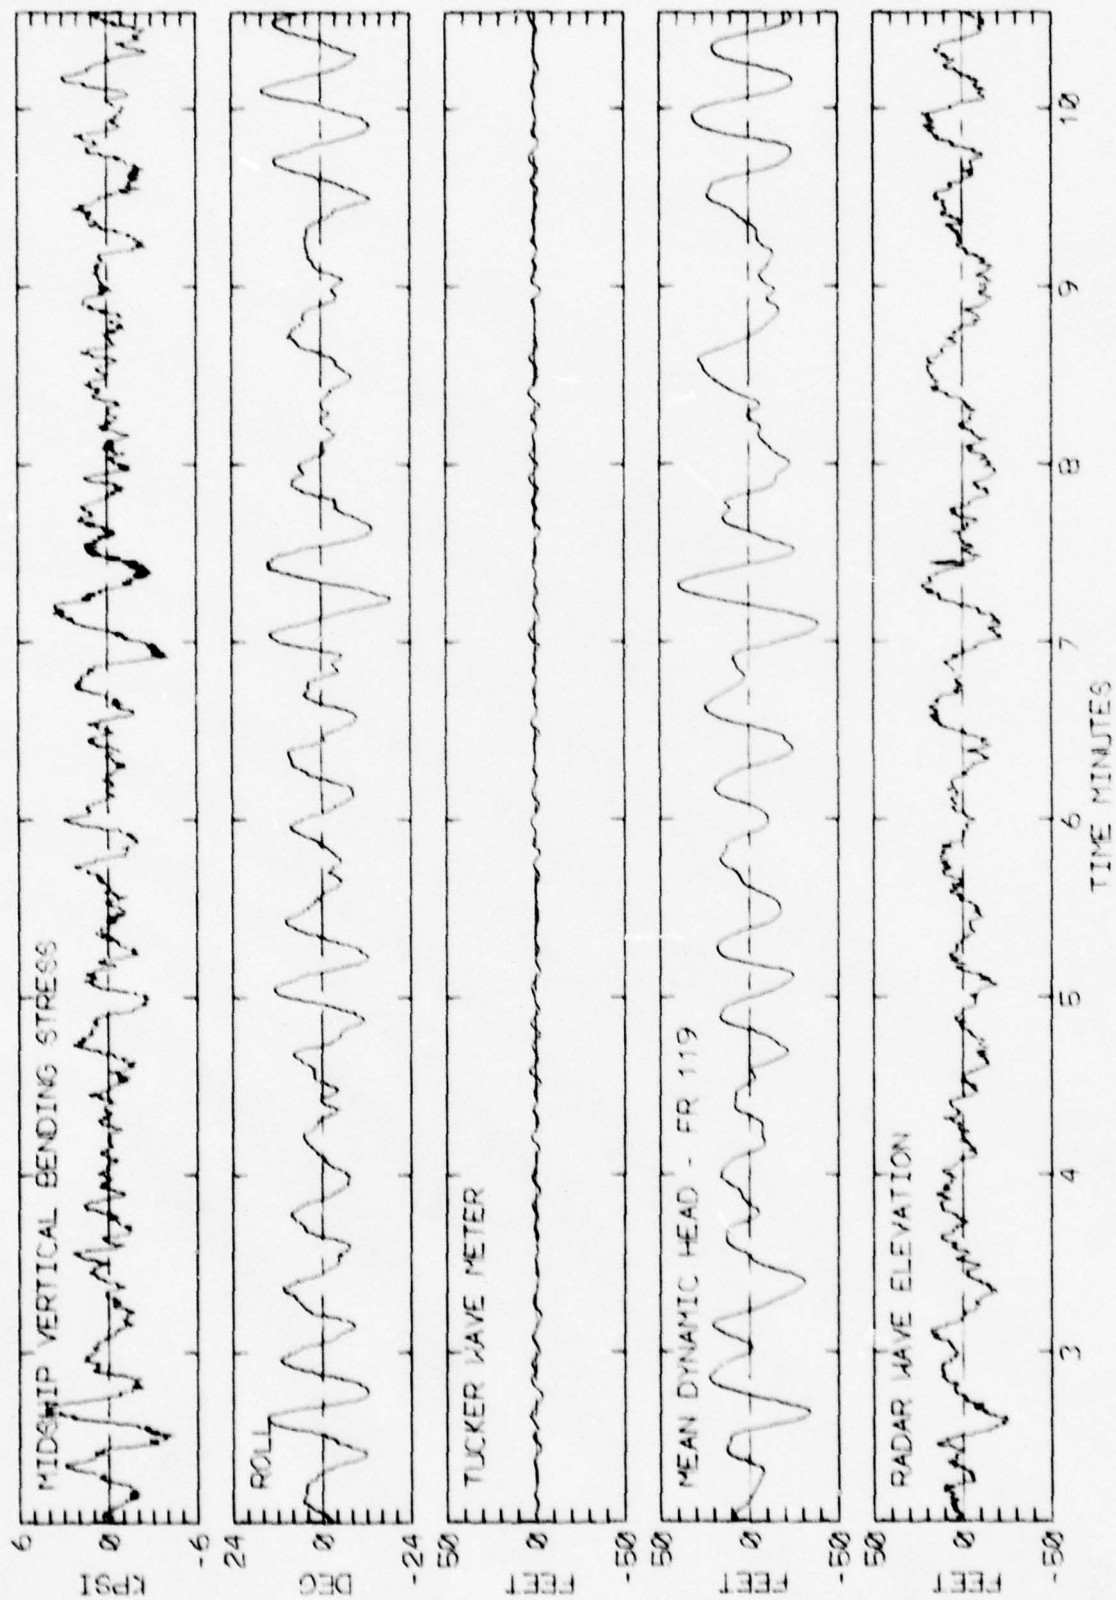 MIDSHIP VERTICAL BENDING STRESS
6
0
-6
KPSI
ROLL
24
0
-24
DEG
TUCKER WAVE METER
50
0
-50
FEET
MEAN DYNAMIC HEAD - FR 119
50
0
-50
FEET
RADAR WAVE ELEVATION
50
0
-50
FEET
3 4 5 6 7 8 9 10
TIME MINUTES